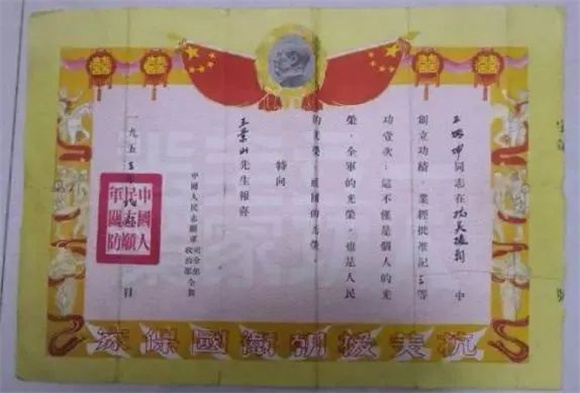 坤同志在抗美援朝 中
創立功績,業經批准記三等
功壹次;這不僅是個人的光
榮,全軍的光榮,也是人民
的光榮,祖國的光榮。
特向
王業山先生報喜
中國人民志願軍
司令部
政治部
一九五三年 月 日
中國人
民志願
抗美援朝衛國保家